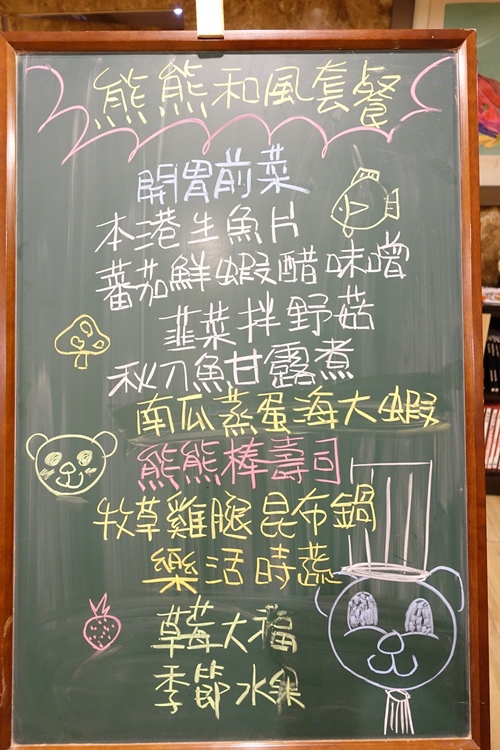 熊熊和風套餐
開胃前菜
本港生魚片
蕃茄鮮蝦醋味噌
韮菜拌野菇
秋刀魚甘露煮
南瓜蒸蛋海大蝦
熊熊棒壽司
牧草雞腿昆布鍋
樂活時蔬
草莓大福
季節水果